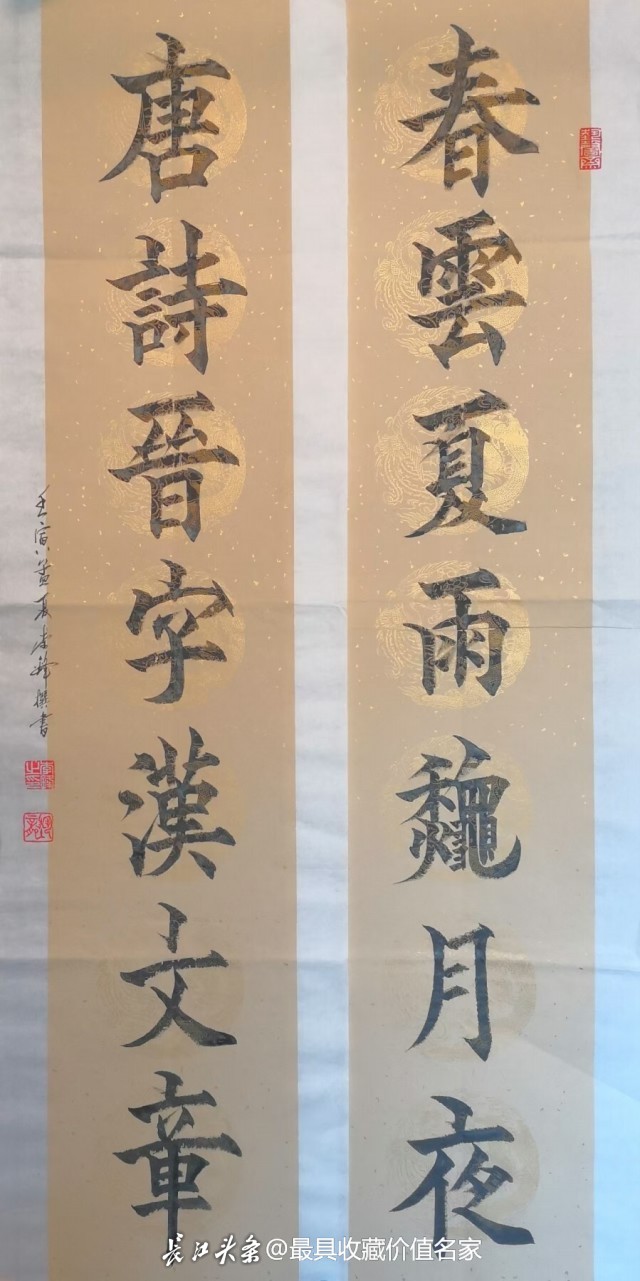 春雲夏雨龝月夜
唐詩晉字漢文章
壬寅孟夏李撰書
长江头条@最具收藏价值名家